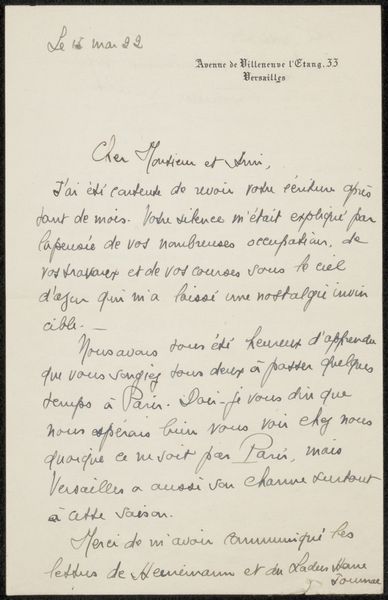 Le 15 mai 22
Avenue de Villeneuve l'Etang, 33
Versailles
Cher Monsieur et Ami,
J'ai été contente de revoir votre écriture après
tant de mois. Votre silence m'était expliqué par
la pensée de vos nombreuses occupation, de
vos travaux et de vos courses sous le ciel
d'azur qui m'a laissé une nostalgie invin
cible. —
Nous avons tous été heureux d'apprendre
que vous songiez tous deux à passer quelques
temps à Paris. Dois-je vous dire que
nous espérons bien vous voir chez nous
quoique ce ne soit pas Paris, mais
Versailles a aussi son charme surtout
à cette saison.
Merci de m'avoir communiqué les
lettres de Heinemann et du Ladies Home
Journal